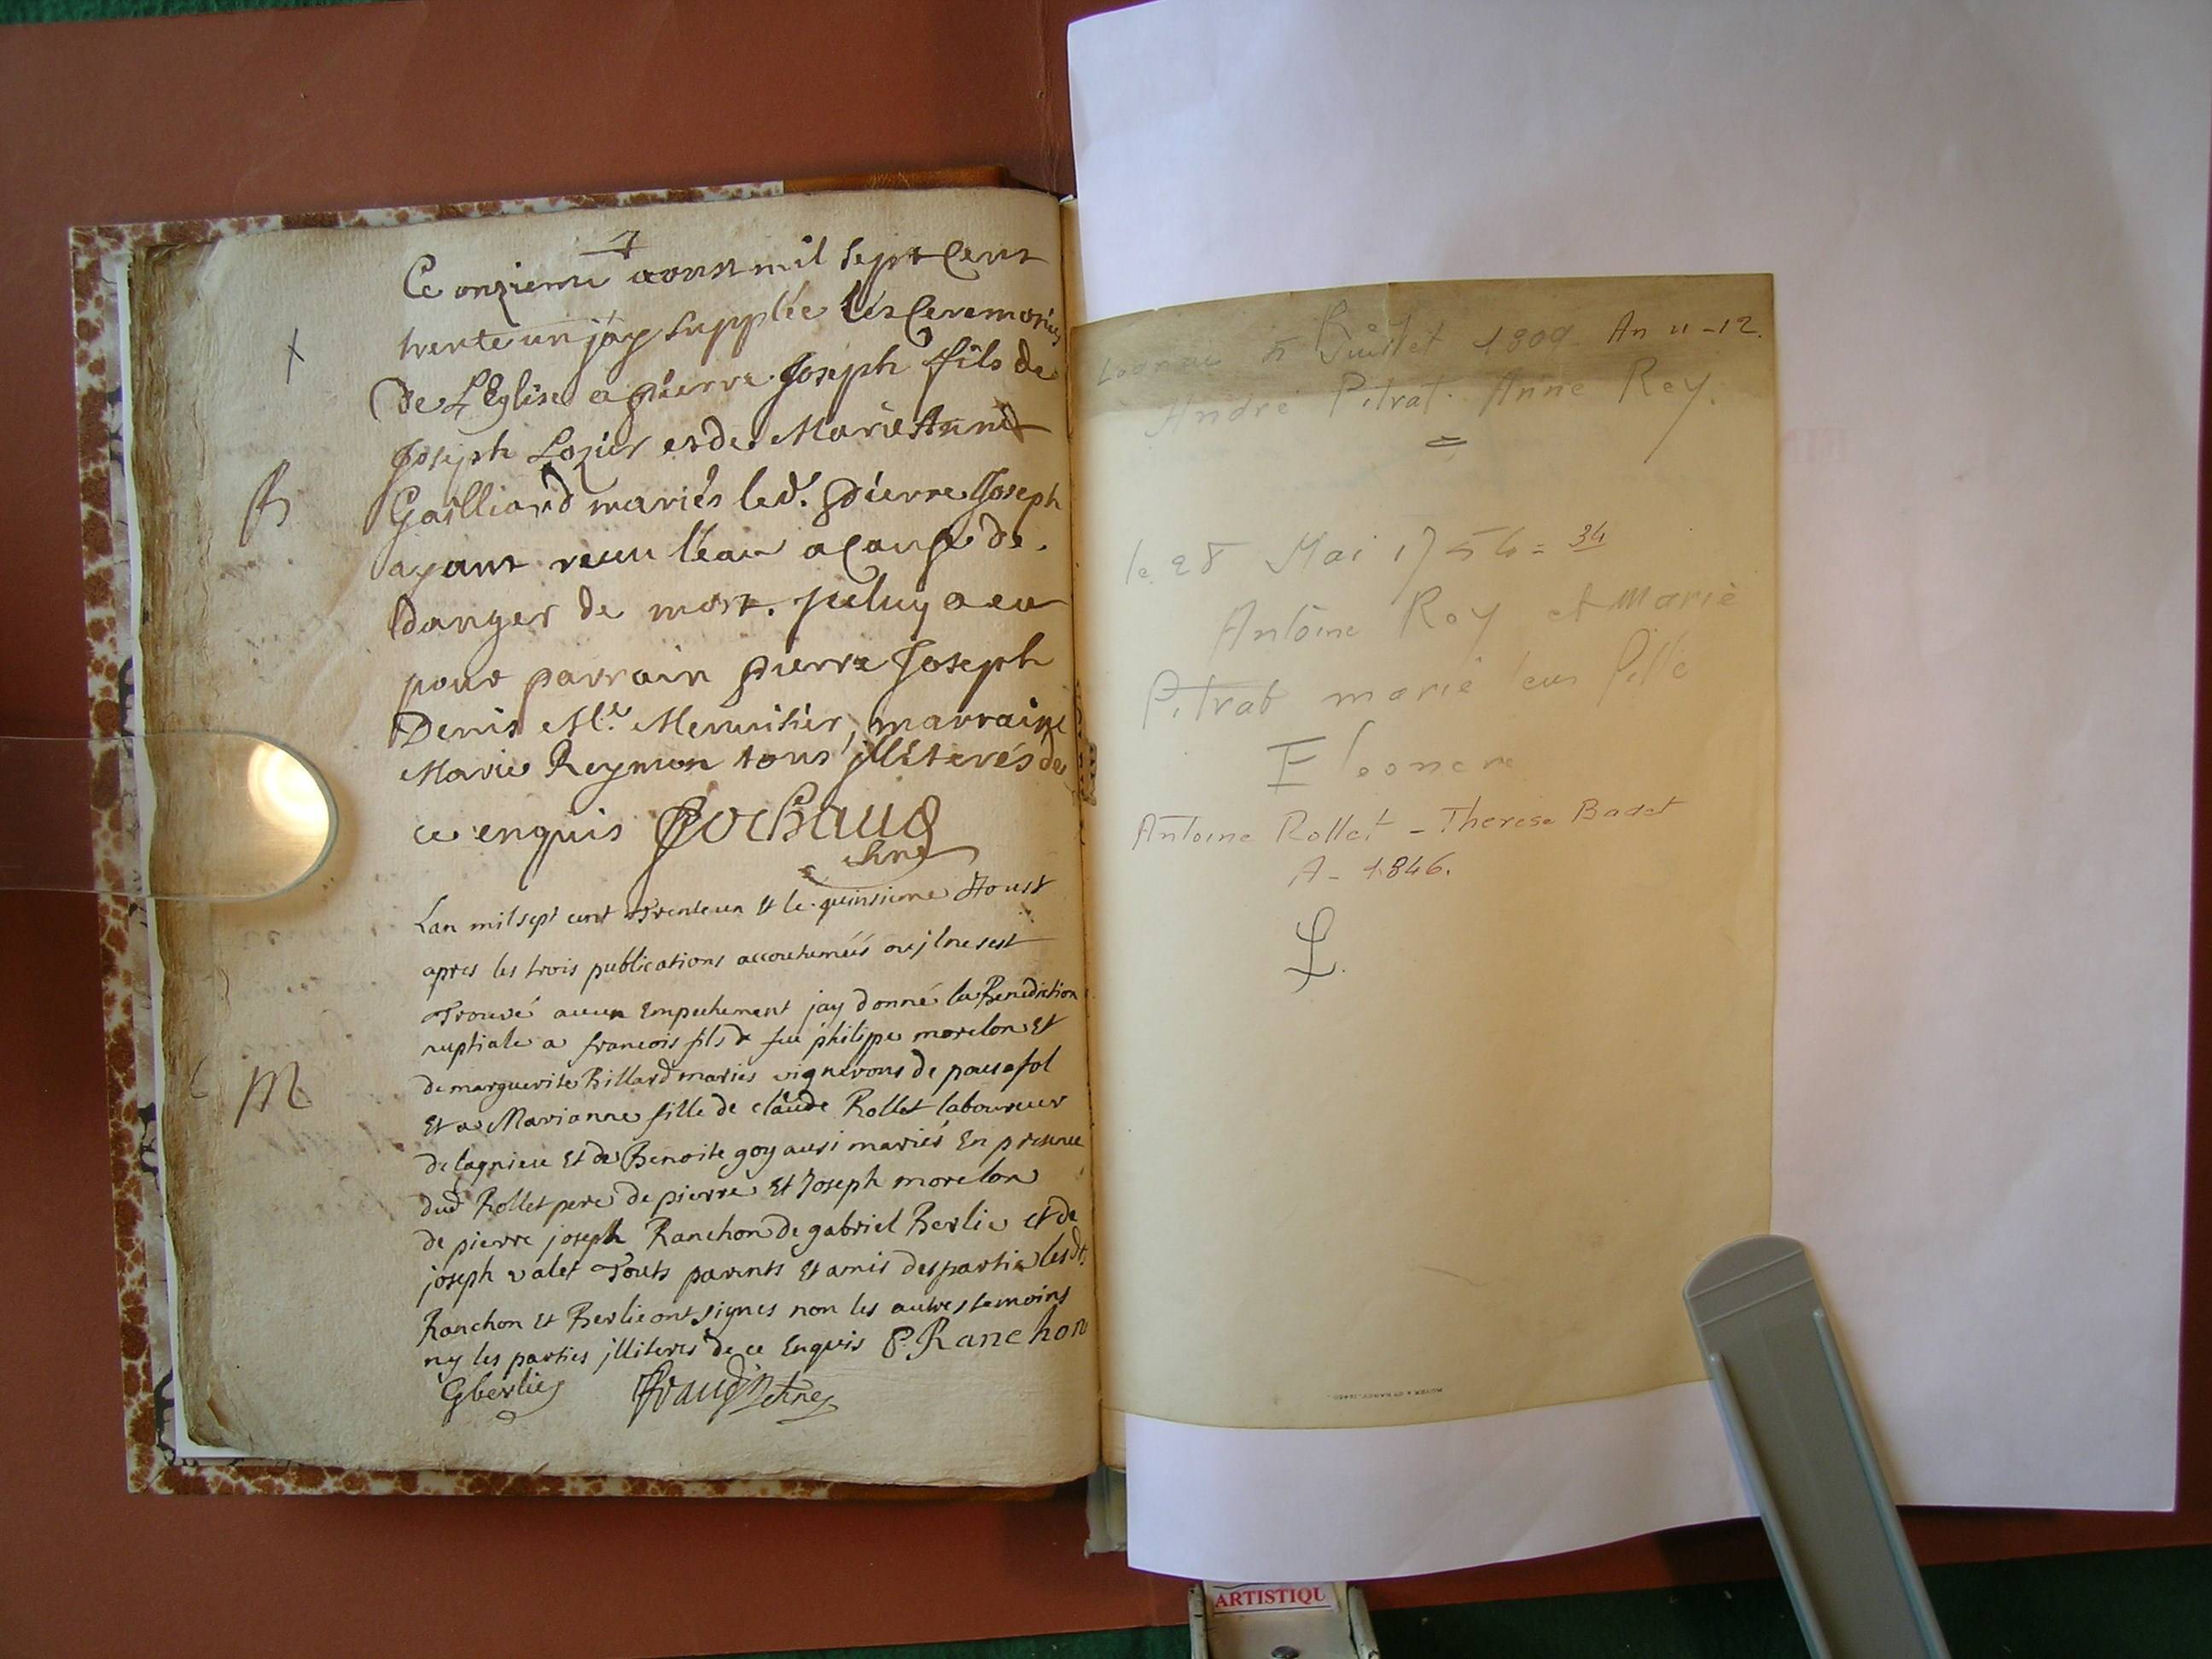 Ce onzieme aoust mil sept cent
trente un jay supplée les ceremonies
de L'Eglise a pierre Joseph fils de
Joseph Lozier et de Marie Anne
Gailliard mariés led. pierre Joseph
ayant receu l'eau a cause de
danger de mort. il luy a eu
pour parrain pierre Joseph
Denis Me. Menuisier, marraine
Marie Reymon tous illiterés de
ce enquis
B
Lan mil sept cent Trente un Et le quinsieme Aoust
apres les trois publications accoutumées ou il ne sest
Trouvé aucun Empechement jay donné la Benediction
nuptiale a francois fils de feu philippe morelon Et
de marguerite Billard mariés vignerons de posafol
Et a Marianne fille de claude Rollet laboureur
de lagnieu Et de Benoite goy ausi mariés En presence
dud Rollet pere de pierre Et Joseph morelon
de pierre joseph Ranchon de gabriel Berlie et de
joseph valet Touts parents Et amis des partie lesdt.
Ranchon Et Berlie ont signes non les autres temoins
ny les parties jlliteres de ce Enquis P. Ranchon
Gberlie
M
5 Juillet 1809 An 11-12.
André Pitrat. Anne Rey.
le 28 Mai 1754 = 34
Antoine Rey et Marie
Pitrat marie leur fille
Eleonore
Antoine Rollet - Therese Badet
A - 1846.
L.
ARTISTIQU